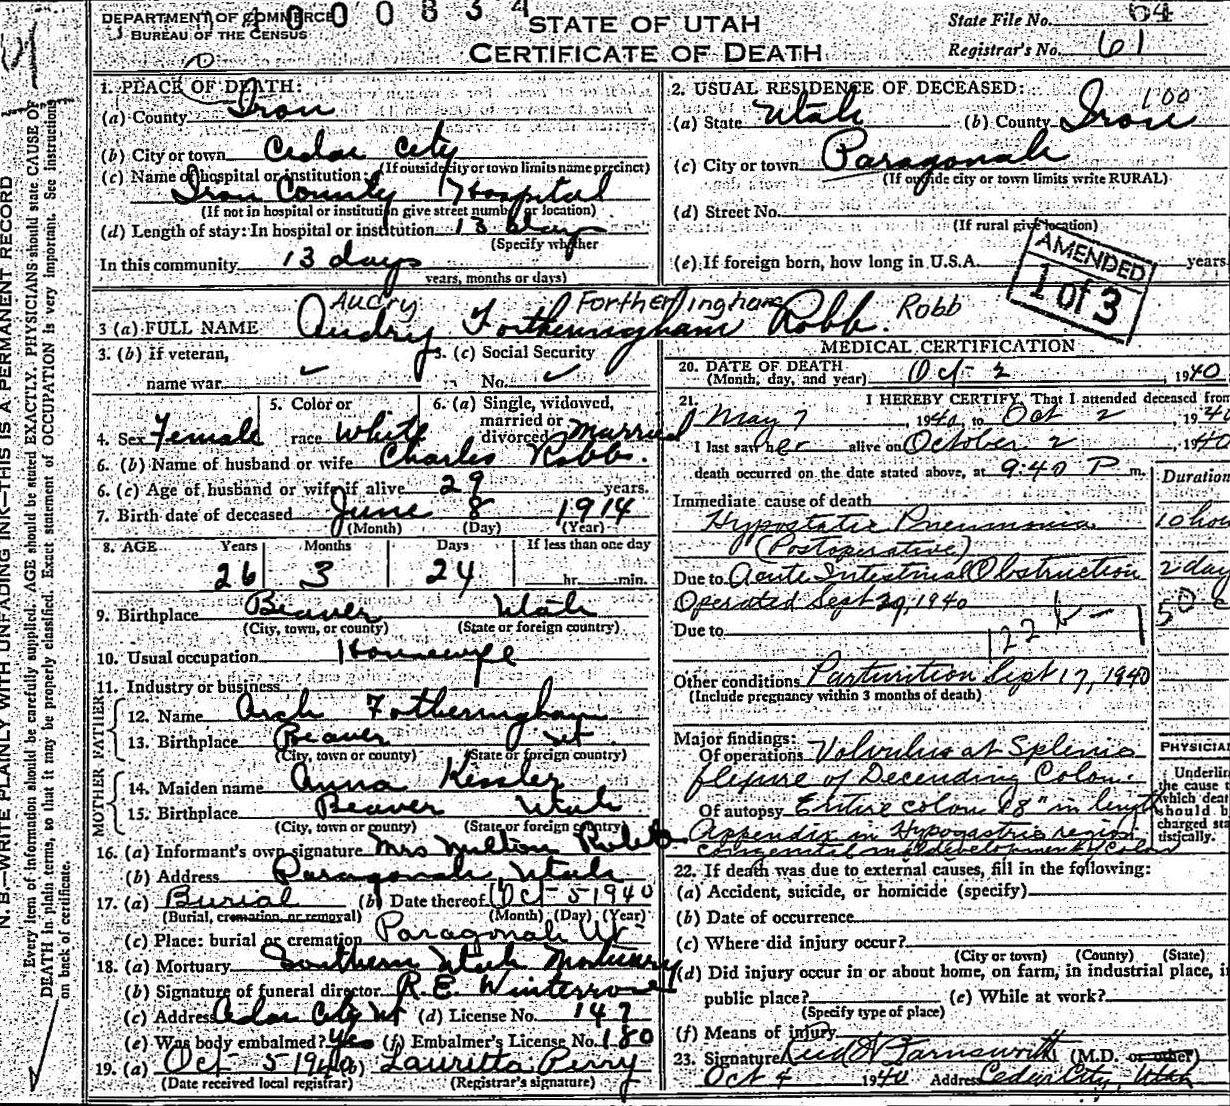 DEPARTMENT OF COMMERCE
BUREAU OF THE CENSUS
000834
STATE OF UTAH
CERTIFICATE OF DEATH
State File No. 64
Registrar's No. 61
N. B.—WRITE PLAINLY WITH UNFADING INK—THIS IS A PERMANENT RECORD
Every item of information should be carefully supplied. AGE should be stated EXACTLY. PHYSICIANS should state CAUSE OF
DEATH in plain terms, so that it may be properly classified. Exact statement of OCCUPATION is very important. See instructions
on back of certificate.
1. PLACE OF DEATH:
(a) County Iron
(b) City or town Cedar City
(If outside city or town limits name precinct)
(c) Name of hospital or institution:
Iron County Hospital
(If not in hospital or institution give street number or location)
(d) Length of stay: In hospital or institution 13 days
(Specify whether
In this community 13 days
years, months or days)
2. USUAL RESIDENCE OF DECEASED:
100
(a) State Utah (b) County Iron
(c) City or town Paragonah
(If outside city or town limits write RURAL)
(d) Street No.
(If rural give location)
(e) If foreign born, how long in U.S.A. years
AMENDED
1 of 3
Audry Fortheringham Robb
3 (a) FULL NAME Audry Fortheringham Robb.
3. (b) if veteran, 3. (c) Social Security
name war ✓ No. ✓
5. Color or 6. (a) Single, widowed,
married or
4. Sex Female race White divorced Married
6. (b) Name of husband or wife Charles Robb.
6. (c) Age of husband or wife if alive 29 years.
7. Birth date of deceased June 8 1914
(Month) (Day) (Year)
8. AGE Years Months Days If less than one day
26 3 24 hr. min.
9. Birthplace Beaver Utah
(City, town, or county) (State or foreign country)
10. Usual occupation Housewife
11. Industry or business
FATHER
12. Name Arch Fotheringham
13. Birthplace Beaver Ut.
(City, town or county) (State or foreign country)
MOTHER
14. Maiden name Anna Kessler
15. Birthplace Beaver Utah
(City, town or county) (State or foreign country)
16. (a) Informant's own signature Mrs Milton
(b) Address Paragonah, Utah
17. (a) Burial (b) Date thereof Oct 5 1940
(Burial, cremation, or removal) (Month) (Day) (Year)
(c) Place: burial or cremation Paragonah Ut
18. (a) Mortuary Southern Utah Mortuary
(b) Signature of funeral director R.E. Winterrose
(c) Address Cedar City Ut (d) License No. 147
(e) Was body embalmed? Yes (f) Embalmer's License No. 180
19. (a) Oct 5 1940 (b) Lauretta Perry
(Date received local registrar) (Registrar's signature)
MEDICAL CERTIFICATION
20. DATE OF DEATH
(Month, day, and year) Oct- 2 1940
21. I HEREBY CERTIFY, That I attended deceased from
May 7, 1940, to Oct 2, 194
I last saw her alive on October 2, 1940
death occurred on the date stated above, at 9:40 P m.
Duration
Immediate cause of death
Hypostatic Pneumonia 10 hou
(Postoperative)
Due to Acute Intestinal Obstruction 2 day
Operated Sept 29, 1940
Due to 122 b-1
Other conditions Parturition Sept 17, 1940
(Include pregnancy within 3 months of death)
Major findings:
Of operations Volvulus at Splenic
flexure of Decending Colon.
Of autopsy Entire colon 48" in length
Appendix in Hypogastric region
congenital colon
PHYSICIAN
Underline
the cause t
which deat
should b
charged sta
tistically.
22. If death was due to external causes, fill in the following:
(a) Accident, suicide, or homicide (specify)
(b) Date of occurrence
(c) Where did injury occur?
(City or town) (County) (State)
(d) Did injury occur in or about home, on farm, in industrial place, i
public place? (e) While at work?
(Specify type of place)
(f) Means of injury
23. Signature Reid N Farnsworth (M.D. or other)
Oct 4 1940 Address Cedar City, Utah